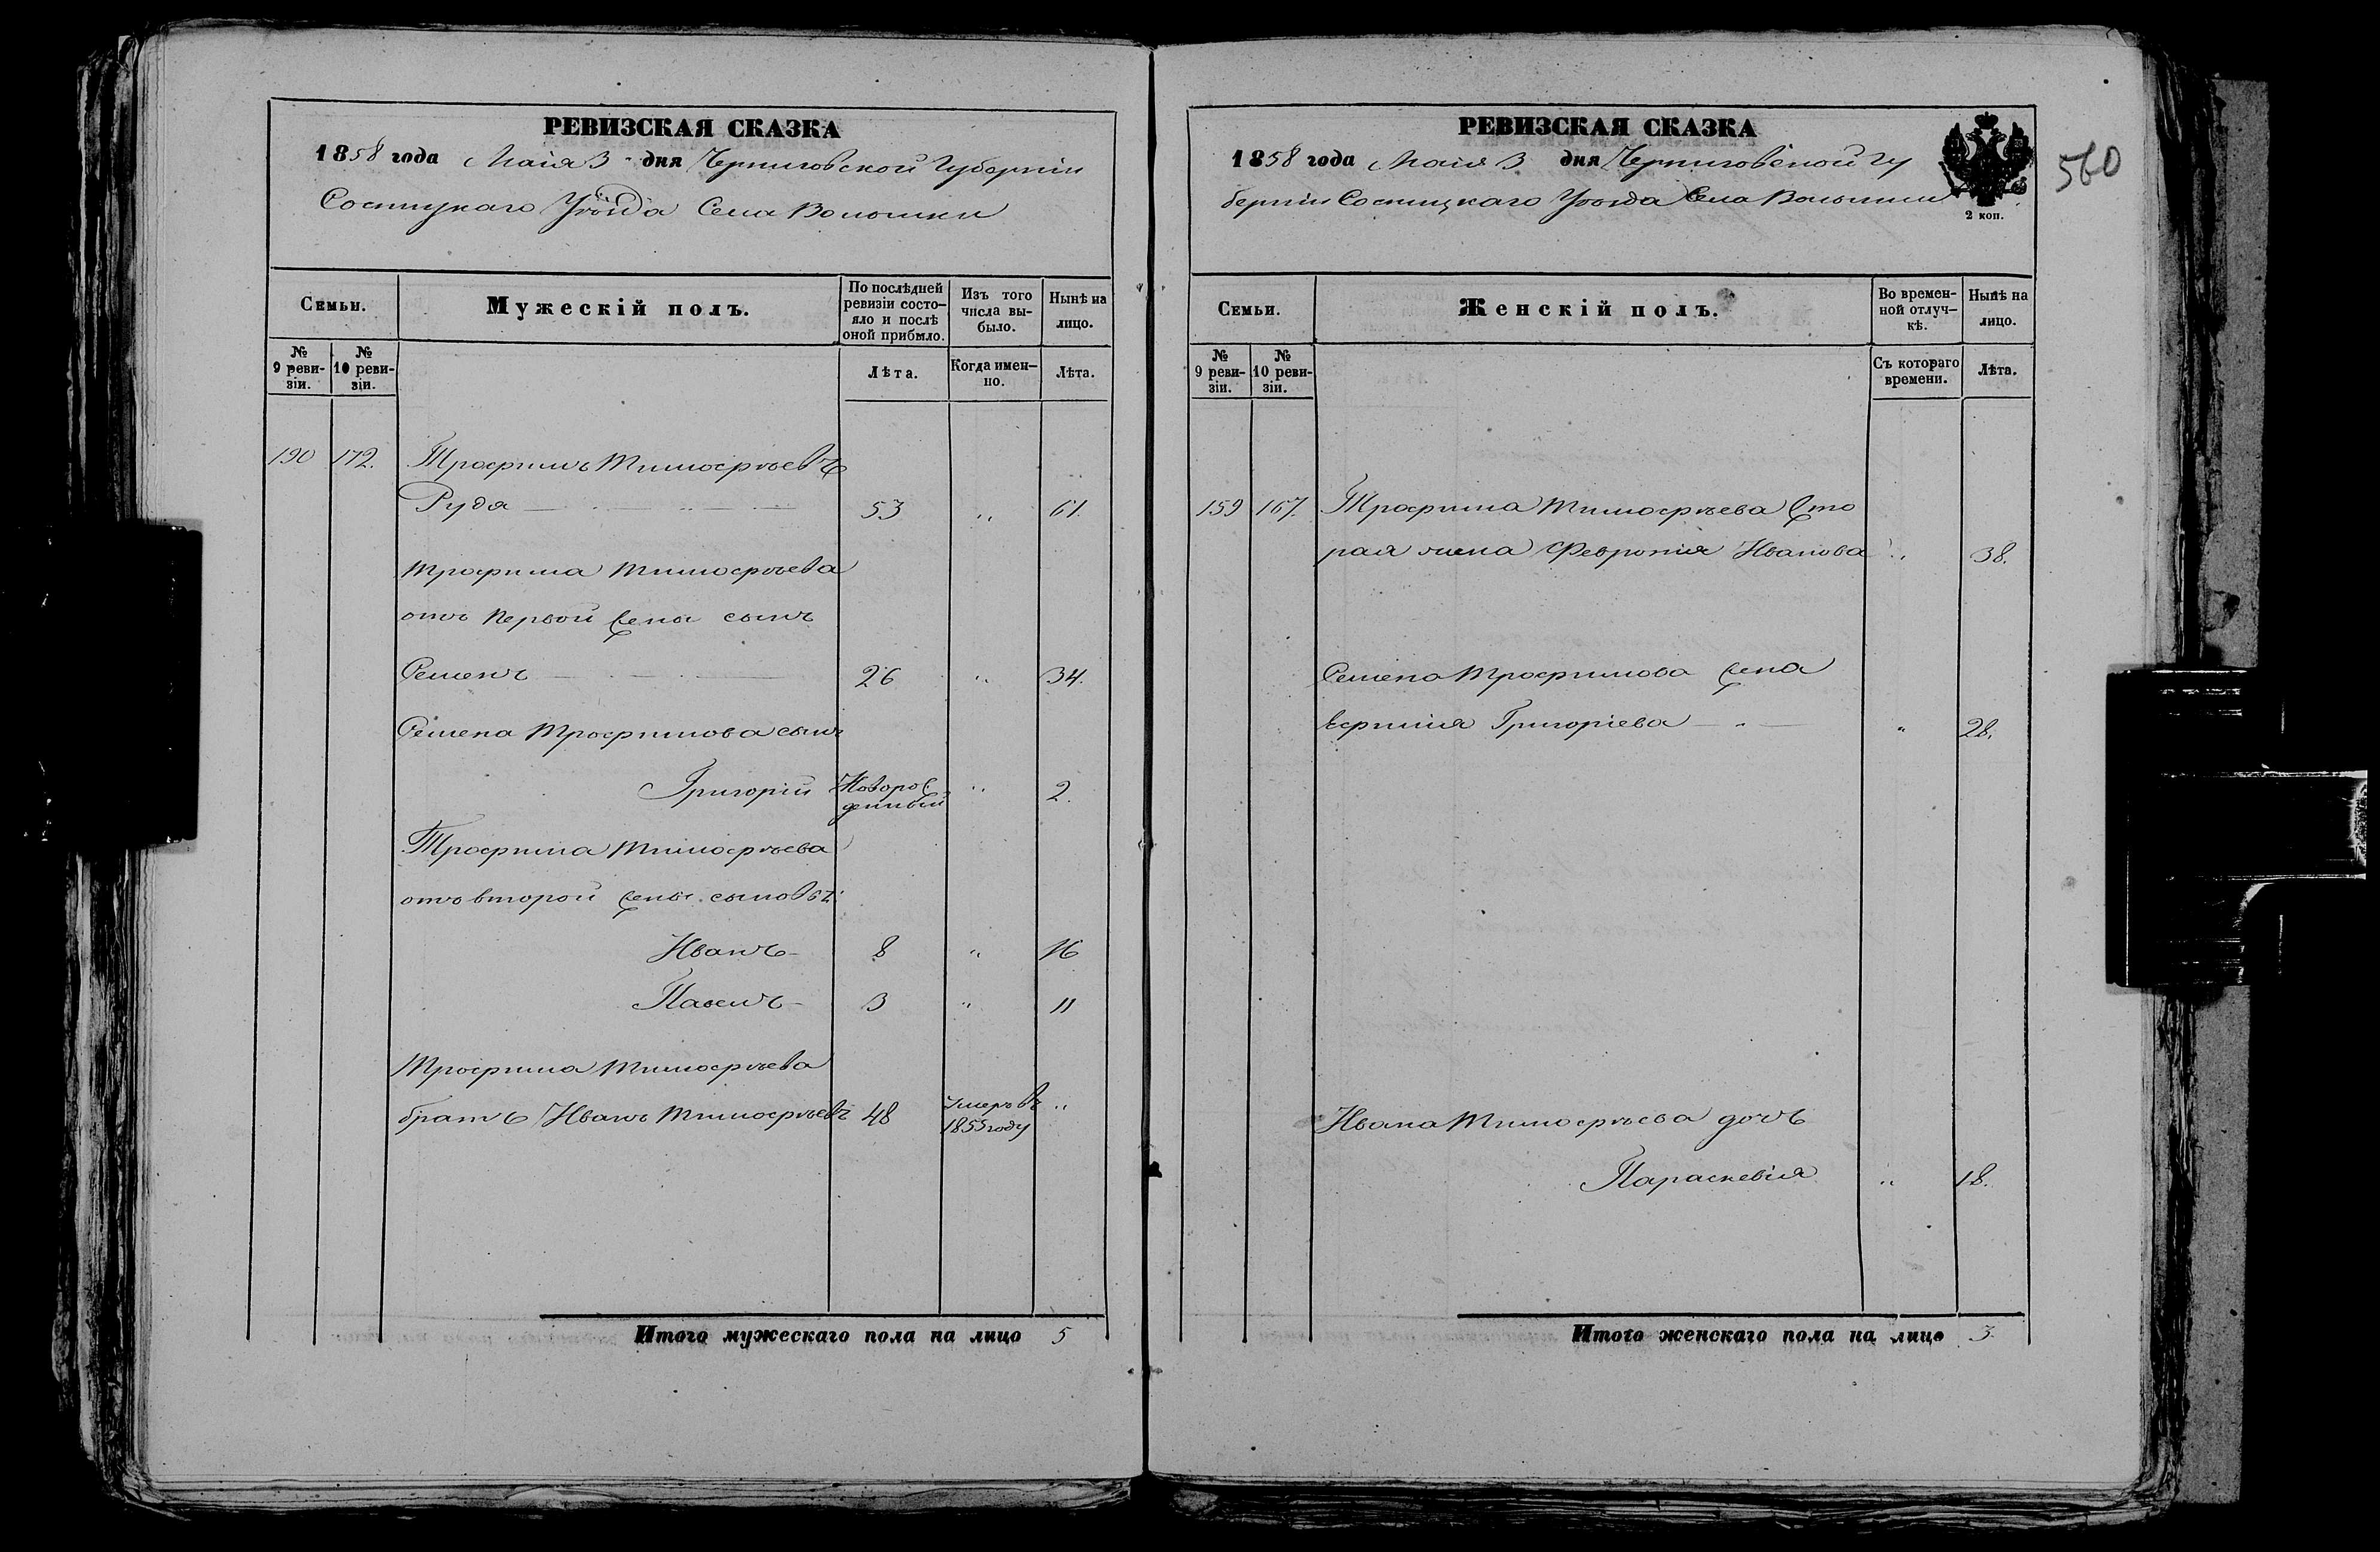 РЕВИЗСКАЯ СКАЗКА
1858 года Маія 3 дня Черниговской Губерніи
Сосницкаго Уѣзда Села Волынки
Семьи.
Мужескій полъ.
По послѣдней ревизіи состояло и послѣ оной прибыло.
Изъ того числа выбыло.
Нынѣ на лицо.
№ 9 ревизіи.
№ 10 ревизіи.
Лѣта.
Когда именно.
Лѣта.
190 172. Трофимъ Тимофѣевъ
Руда 53 „ 61.
Трофима Тимофѣева
отъ первой жены сынъ
Семенъ 26 „ 34.
Семена Трофимова сынъ
Григорій Новорожденный „ 2.
Трофима Тимофѣева
отъ второй жены сыновья:
Иванъ 8 „ 16
Павелъ 3 „ 11
Трофима Тимофѣева
братъ Иванъ Тимофѣевъ 48 Умеръ въ 1855 году „
Итого мужескаго пола на лицо 5
РЕВИЗСКАЯ СКАЗКА
1858 года Маія 3 дня Черниговской Гу
берніи Сосницкаго Уѣзда Села Волынки
2 коп.
560
Семьи.
Женскій полъ.
Во временной отлучкѣ.
Нынѣ на лицо.
№ 9 ревизіи.
№ 10 ревизіи.
Съ котораго времени.
Лѣта.
159 167. Трофима Тимофѣева вто
рая жена Февронія Иванова „ 38.
Семена Трофимова жена
Григоріева „ 28.
Ивана Тимофѣева дочь
Параскевія „ 18.
Итого женскаго пола на лицо 3.